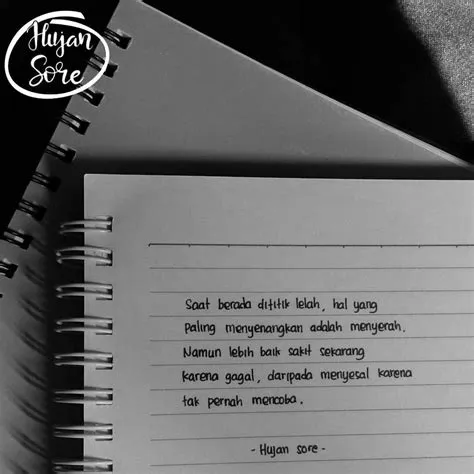 Hujan
Sore
Saat berada dititik lelah, hal yang
Paling menyenangkan adalah menyerah.
Namun lebih baik sakit sekarang
karena gagal, daripada menyesal karena
tak pernah mencoba.
- Hujan sore -